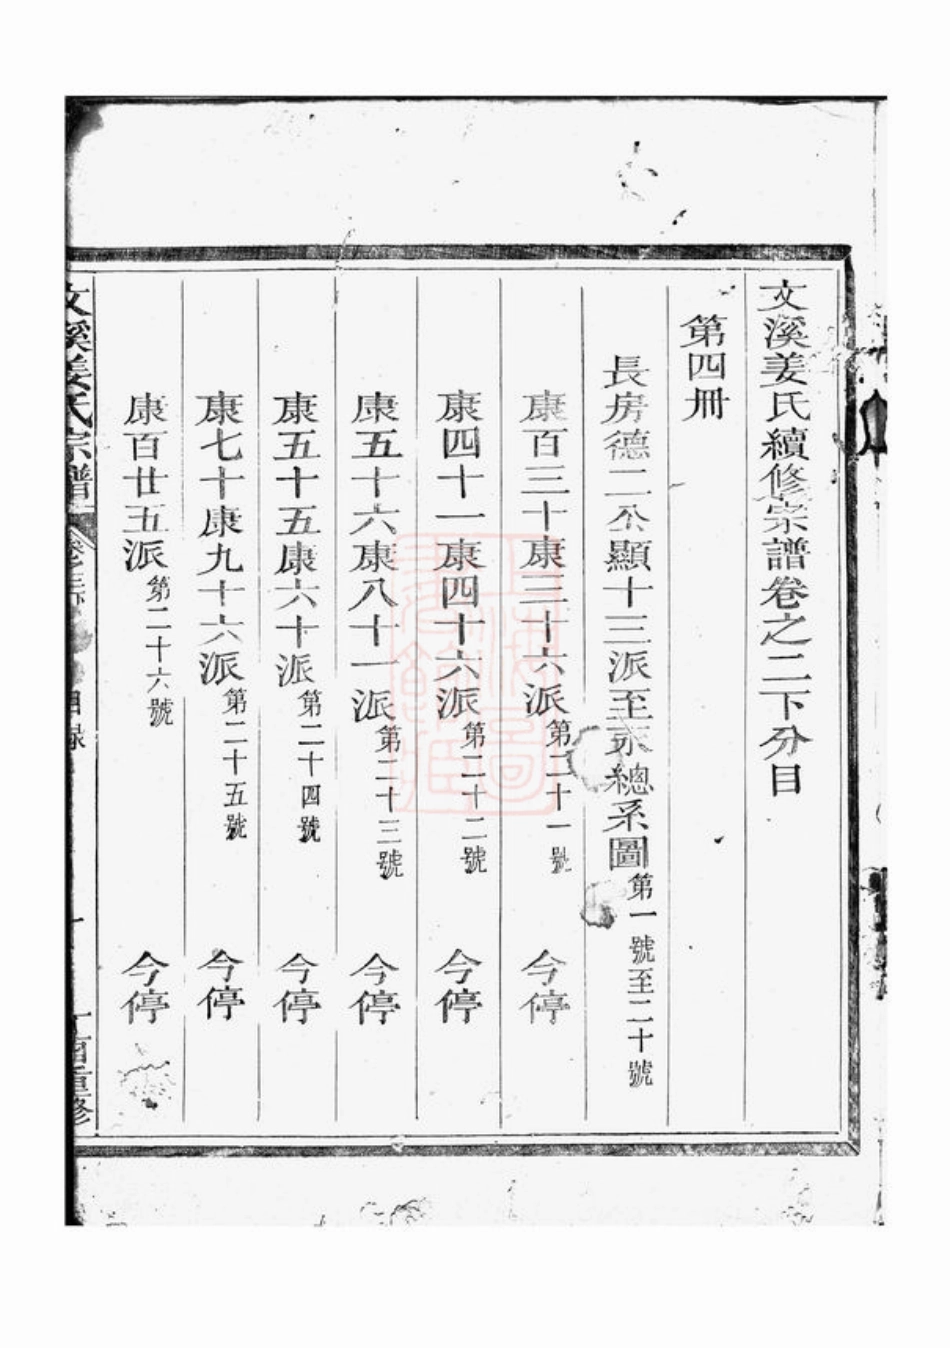 文溪姜氏續修宗譜卷之二下分目
第四冊
長房德二公顯十三派至永總系圖第一號至二十號
康百三十康三十六派第二十一號 今停
康四十一康四十六派第二十二號 今停
康五十六康八十一派第二十三號 今停
康五十五康六十派第二十四號 今停
康七十康九十六派第二十五號 今停
康百廿五派第二十六號 今停
文溪姜氏宗譜 目錄 丁酉重修